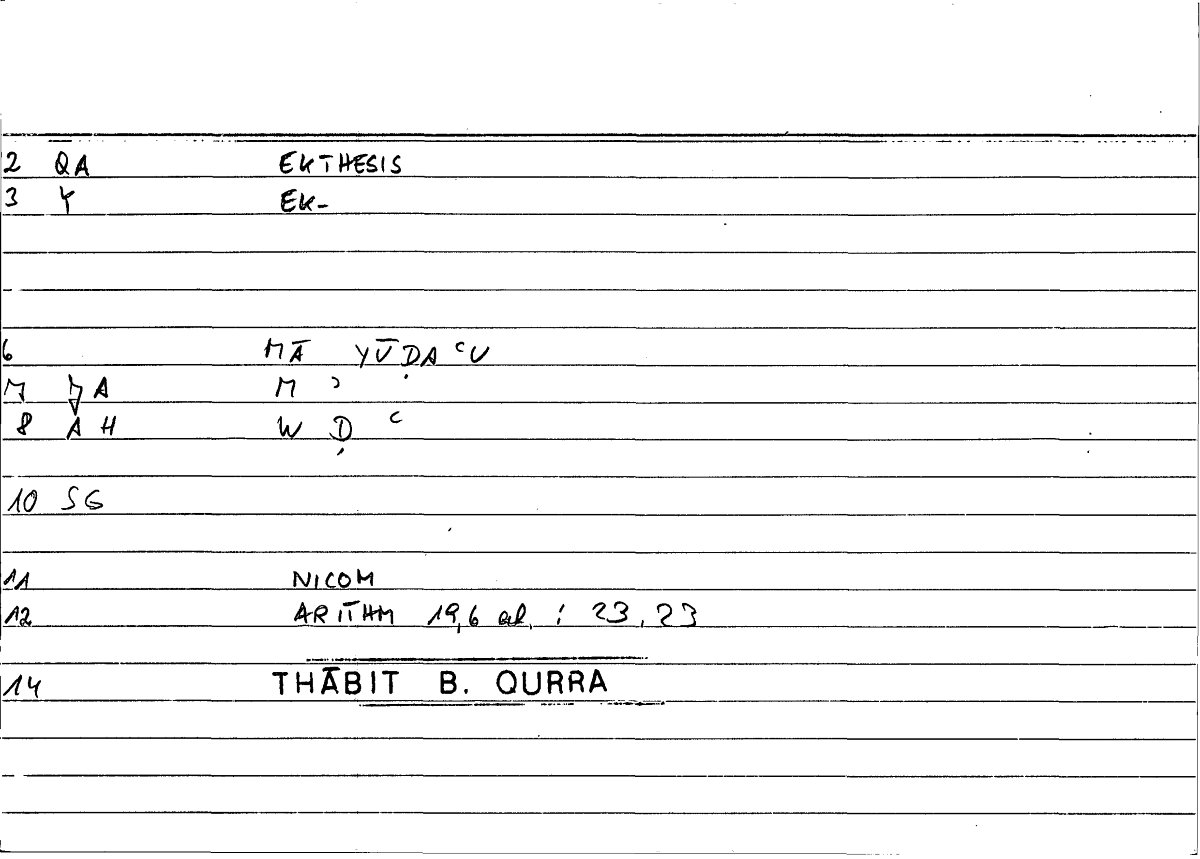 2 QA EKTHESIS
3 Y EK-
6 MĀ YŪḌAʿU
7 7A M ʾ
8 AH W Ḍ ʿ
10 SG
11 NICOM
12 ARITHM 19,6 al. : 23,23
14 THĀBIT B. QURRA